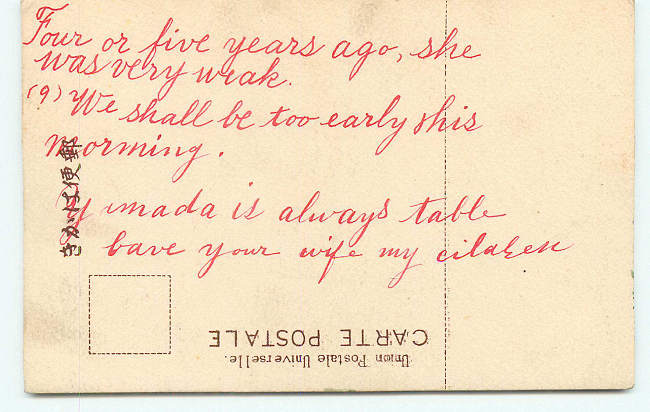 Four or five years ago, she
was very weak.
(9) We shall be too early this
morning.
Yamada is always table
bave your wife my
郵便はかき
CARTE POSTALE
Union Postale Universelle.